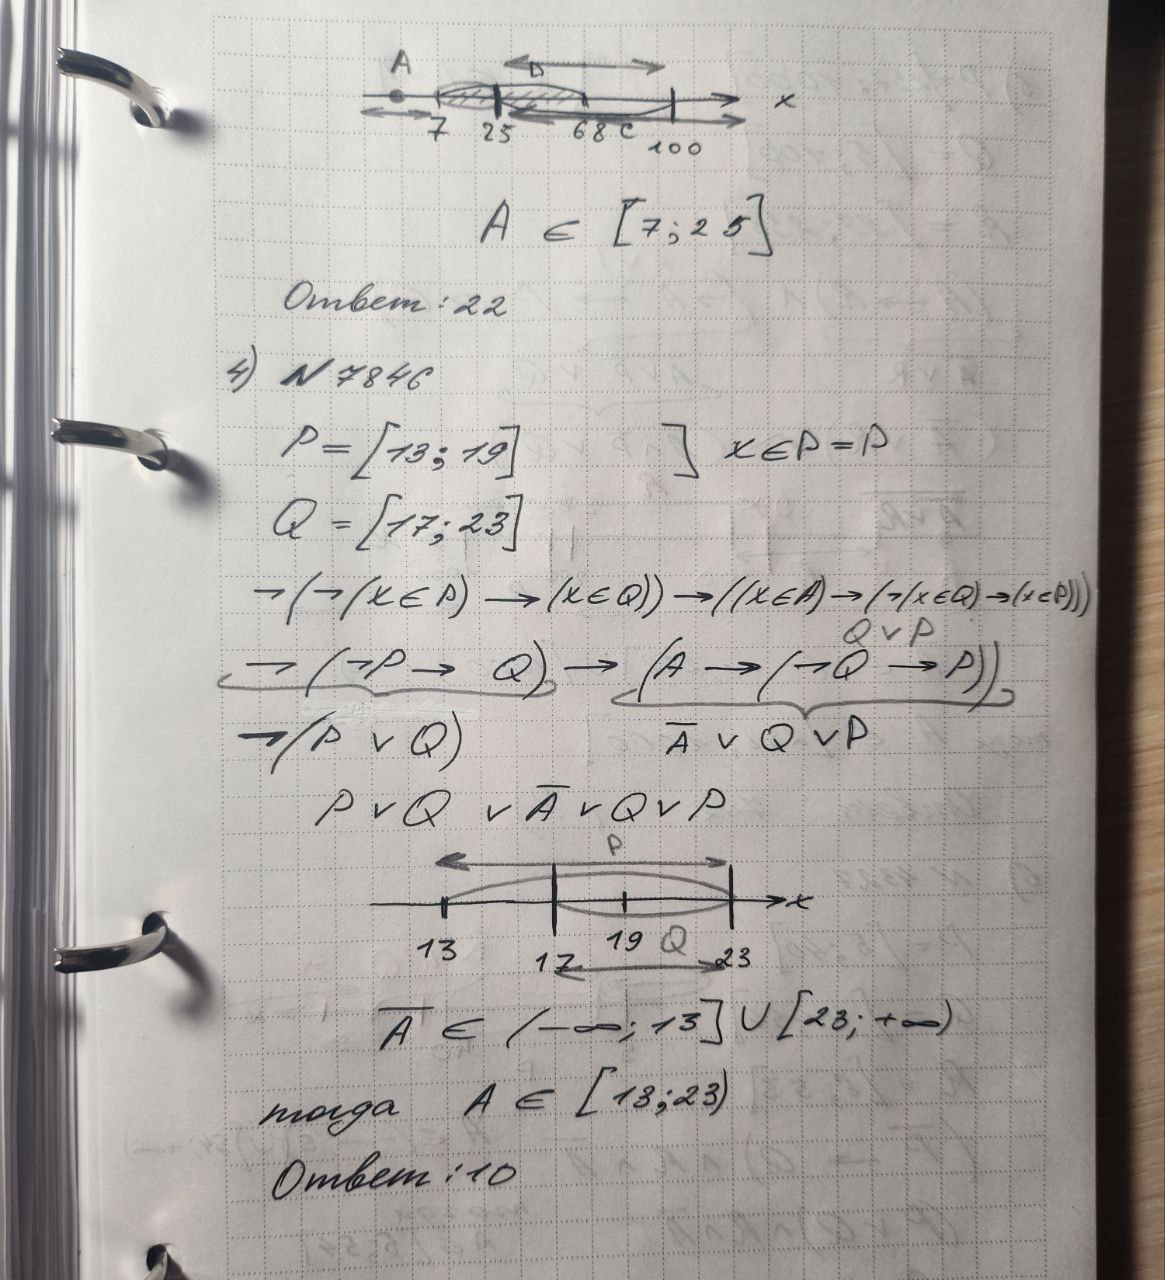 A
D
x
7 25 68 C 100
A ∈ [7; 25]
Ответ: 22
4) N 7846
P = [13; 19] ] x∈P = P
Q = [17; 23]
¬(¬(x∈P) → (x∈Q)) → ((x∈A) → (¬(x∈Q) → (x∈P)))
Q ∨ P
¬(¬P → Q) → (A → (¬Q → P))
¬(P ∨ Q) A̅ ∨ Q ∨ P
P ∨ Q ∨ A̅ ∨ Q ∨ P
P
x
13 17 19 Q 23
A̅ ∈ (-∞; 13] ∪ [23; +∞)
тогда A ∈ [13; 23)
Ответ: 10